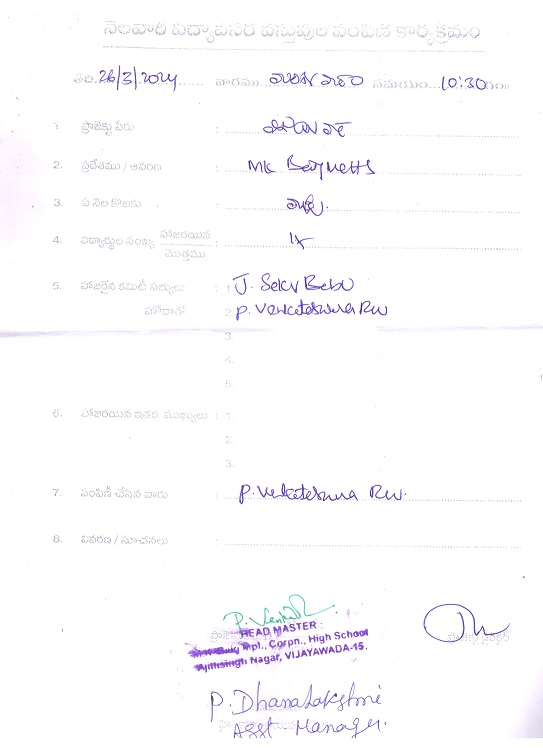 నెలవారీ విద్యావసర వస్తువుల పంపిణి కార్యక్రమం
తేది. 26/3/2024 వారము మంగళవారం సమయం 10:30గం॥
1. ప్రాజెక్టు పేరు :
2. ప్రదేశము / ఆవరణ : MK
3. ఏ నెల కొఱకు : మార్చి
4. విద్యార్థుల సంఖ్య హాజరయిన / మొత్తము :
5. హాజరైన కమిటీ సభ్యులు : 1. J. Babu
హోదాతో 2. P. Venkateswara Rao
3.
4.
5.
6. హాజరయిన ఇతర ముఖ్యులు : 1.
2.
3.
7. పంపిణీ చేసిన వారు : P. Venkateswara Rao.
8. వివరణ / సూచనలు :
P. Venkat
HEAD MASTER
Mpl., Corpn., High School
Ajithsingh Nagar, VIJAYAWADA-15.
P. Dhanalakshmi
Asst Manager.